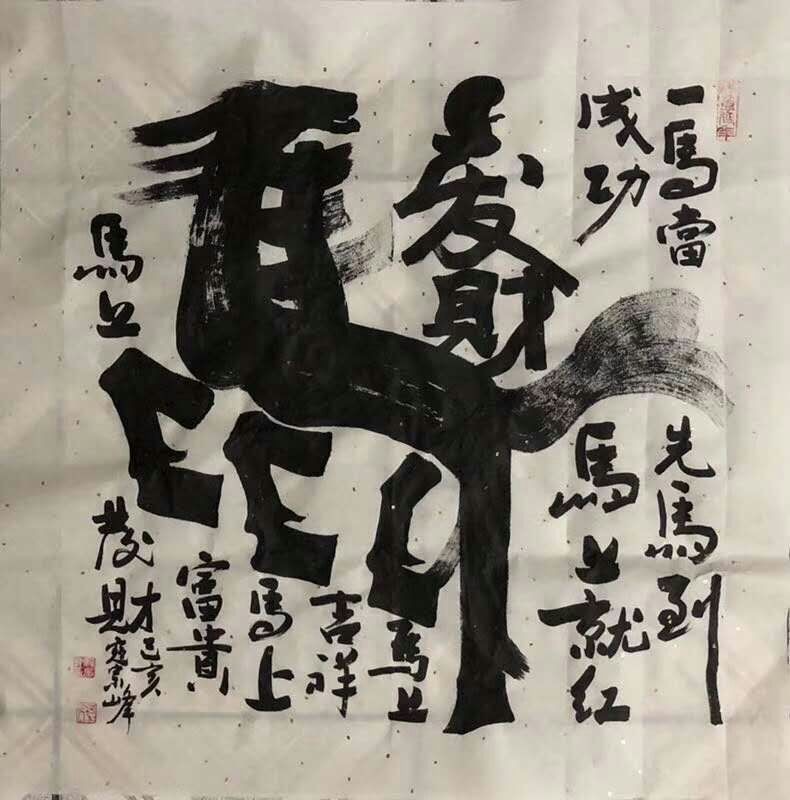 一馬當
先馬到
成功
馬上就红
上发財
馬上
吉祥
馬上
富貴
馬上
發財
己亥